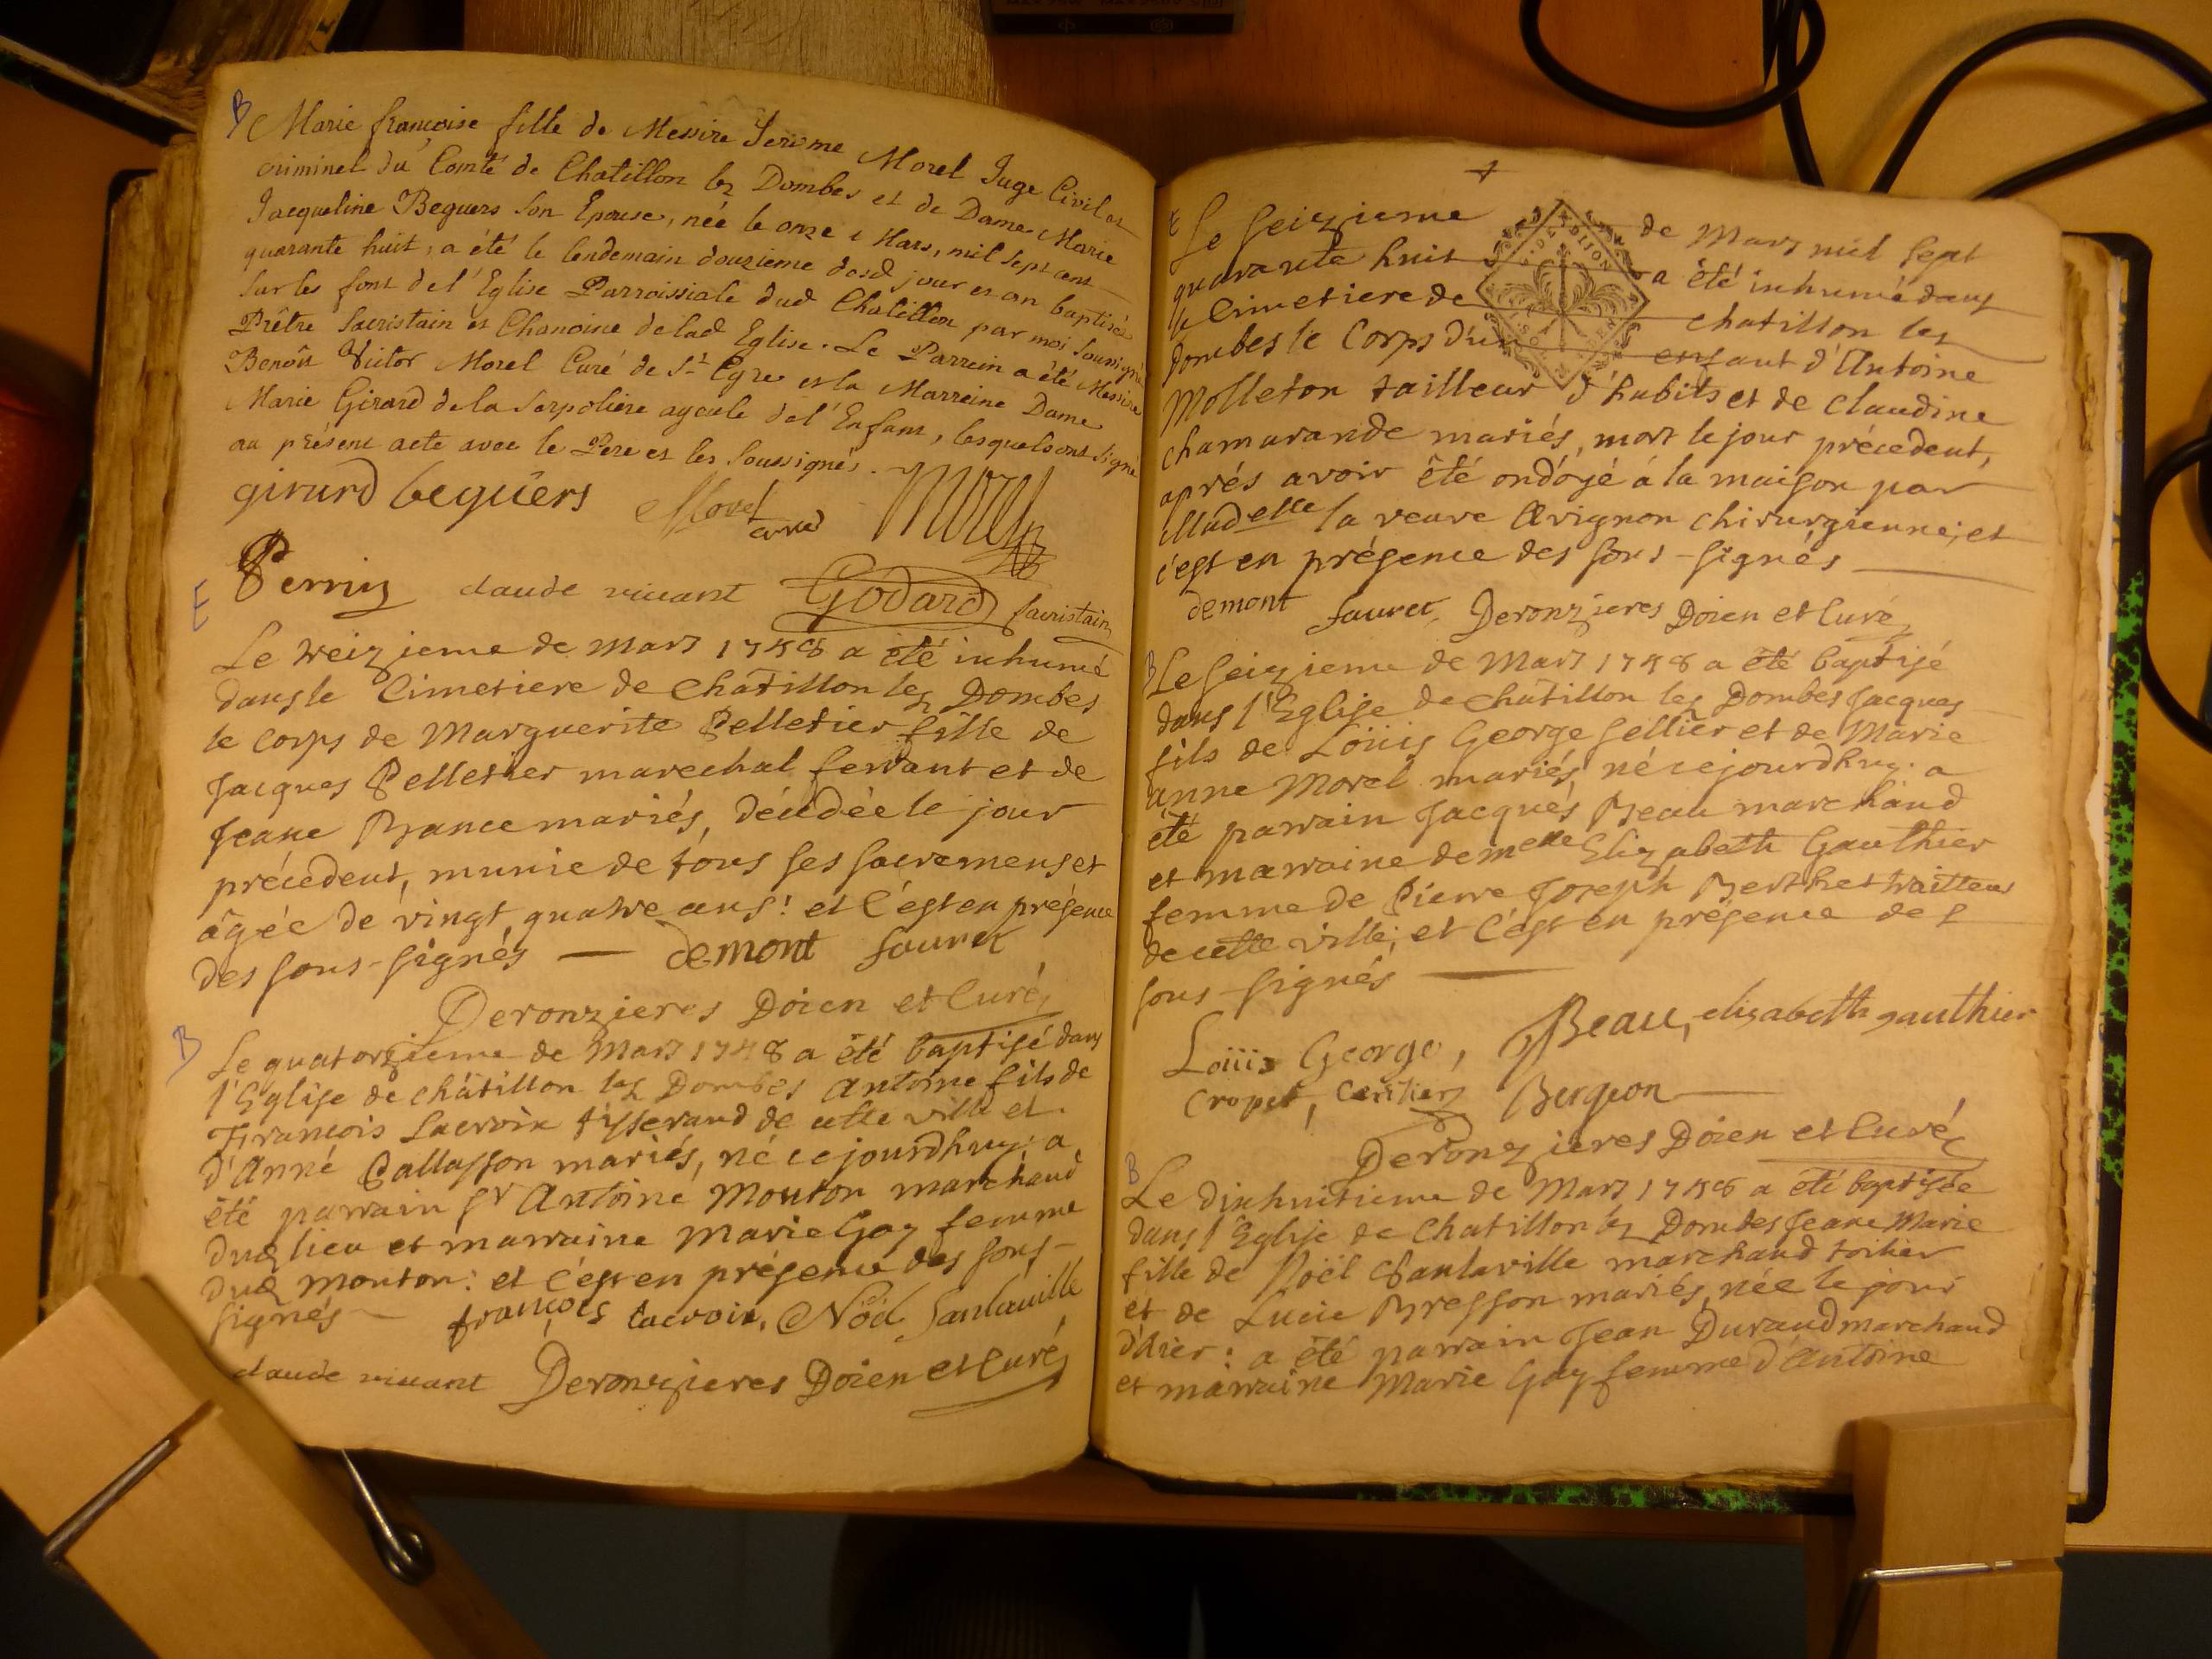 B
Marie françoise fille de Messire Jerome Morel Juge Civil et
criminel du Comté de Chatillon lez Dombes et de Dame Marie
Jacqueline Beguers son Epouse, née le onze Mars, mil sept cent
quarante huit, a été le lendemain douzieme dosd jour et an baptisée
sur les font de l'Eglise Parroissiale dud Chatillon par moi soussigné
Prêtre Sacristain et Chanoine de lad Eglise. Le Parrein a été Messire
Benoît Victor Morel Curé de St Cyre et la Marreine Dame
Marie Girard de la Serpoliere ayeule de l'Enfant, lesquels ont signé
au présent acte avec le Pere et les soussignés.
girard beguers Morel curé Morel
Perrin claude vivant Godard sacristain
E
Le treizieme de Mars 1748 a été inhumé
dans le Cimetiere de châtillon lez Dombes
le corps de Marguerite Pelletier fille de
Jacques Pelletier marechal ferrant et de
Jeane Brance mariés, décédée le jour
précédent, munie de tous ses sacremens et
âgée de vingt quatre ans: et c'est en présence
des sous-signés — demont fauret
Deronzieres Doien et Curé
B
Le quatorzieme de Mars 1748 a été baptisé dans
l'Eglise de châtillon lez Dombes Antoine fils de
François Lacroix tisserand de cette ville et
d'Anne Pallasson mariés, né ce jourdhuy: a
été parrain Sr Antoine Mouton marchand
dud lieu et marraine Marie Gay femme
dud Mouton: et c'est en présence des sous-
signés — françois Lacroix, Nöel Sanlaville
claude vivant Deronzieres Doien et Curé
E
Le seizieme de Mars mil sept
quarante huit a été inhumé dans
le Cimetiere de chatillon les
dombes le Corps d'un enfant d'Antoine
Molleton tailleur d'habits et de claudine
chamarande mariés, mort le jour précédent,
aprés avoir été ondoyé á la maison par
Madelle la veuve Avignon chirurgienne; et
c'est en présence des sous-signés
demont fauret, Deronzieres Doien et Curé
B
Le seizieme de Mars 1748 a été baptisé
dans l'Eglise de châtillon les Dombes Jacques
fils de Loüis George sellier et de Marie
anne Morel mariés né ce jourdhuy: a
été parrain Jacques Beau marchand
et marraine demelle Elizabeth Gauthier
femme de Pierre Joseph Berthet traitteur
de cette ville; et c'est en présence des
sous-signés
Loüis George, Beau, elisabeth gauthier
Cropet, Bergeon
Deronzieres Doien et Curé
B
Le dixhuitieme de Mars 1748 a été baptisée
dans l'Eglise de Chatillon lez Dombes Jeane Marie
fille de Noël Sanlaville marchand toilier
et de Lucie Bresson mariés, née le jour
d'hier: a été parrain Jean Durand marchand
et marraine Marie Gay femme d'Antoine